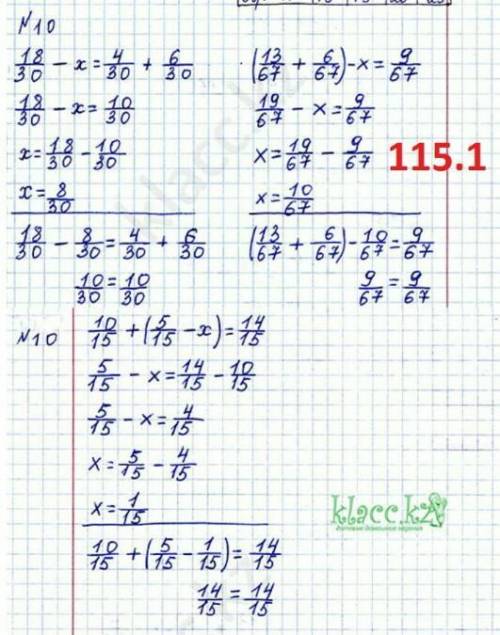 №10
18/30 - x = 4/30 + 6/30
18/30 - x = 10/30
x = 18/30 - 10/30
x = 8/30
18/30 - 8/30 = 4/30 + 6/30
10/30 = 10/30
(13/67 + 6/67) - x = 9/67
19/67 - x = 9/67
x = 19/67 - 9/67
115.1
x = 10/67
(13/67 + 6/67) - 10/67 = 9/67
9/67 = 9/67
№10
10/15 + (5/15 - x) = 14/15
5/15 - x = 14/15 - 10/15
5/15 - x = 4/15
x = 5/15 - 4/15
x = 1/15
10/15 + (5/15 - 1/15) = 14/15
14/15 = 14/15
klacc.kz
готовые домашние задания